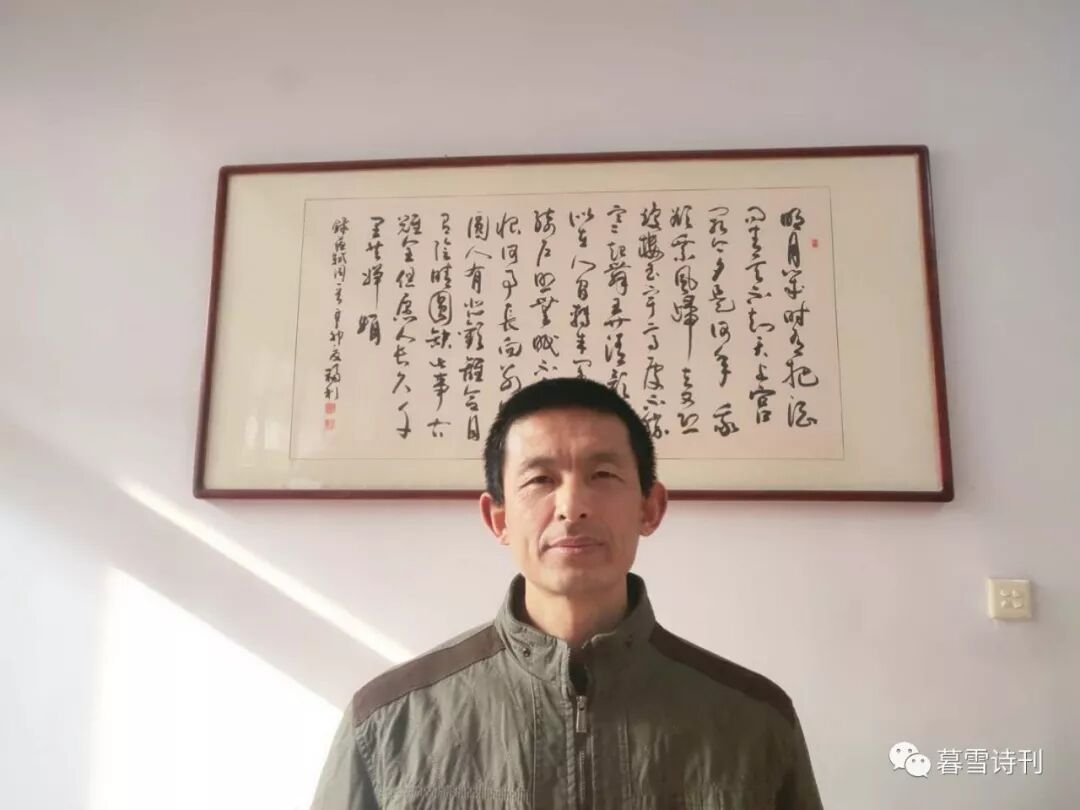 明月幾时有把酒
问青天不知天上宫
阙今夕是何年我
欲乘風歸去又恐
琼楼玉宇高处不胜
寒起舞弄清影
似在人间转朱阁
绮户照無眠不
恨何事长向别
圓人有悲歡離合月
有阴晴圓缺此事古
難全但愿人长久千
里共婵娟
录苏轼词一首辛卯
暮雪诗刊